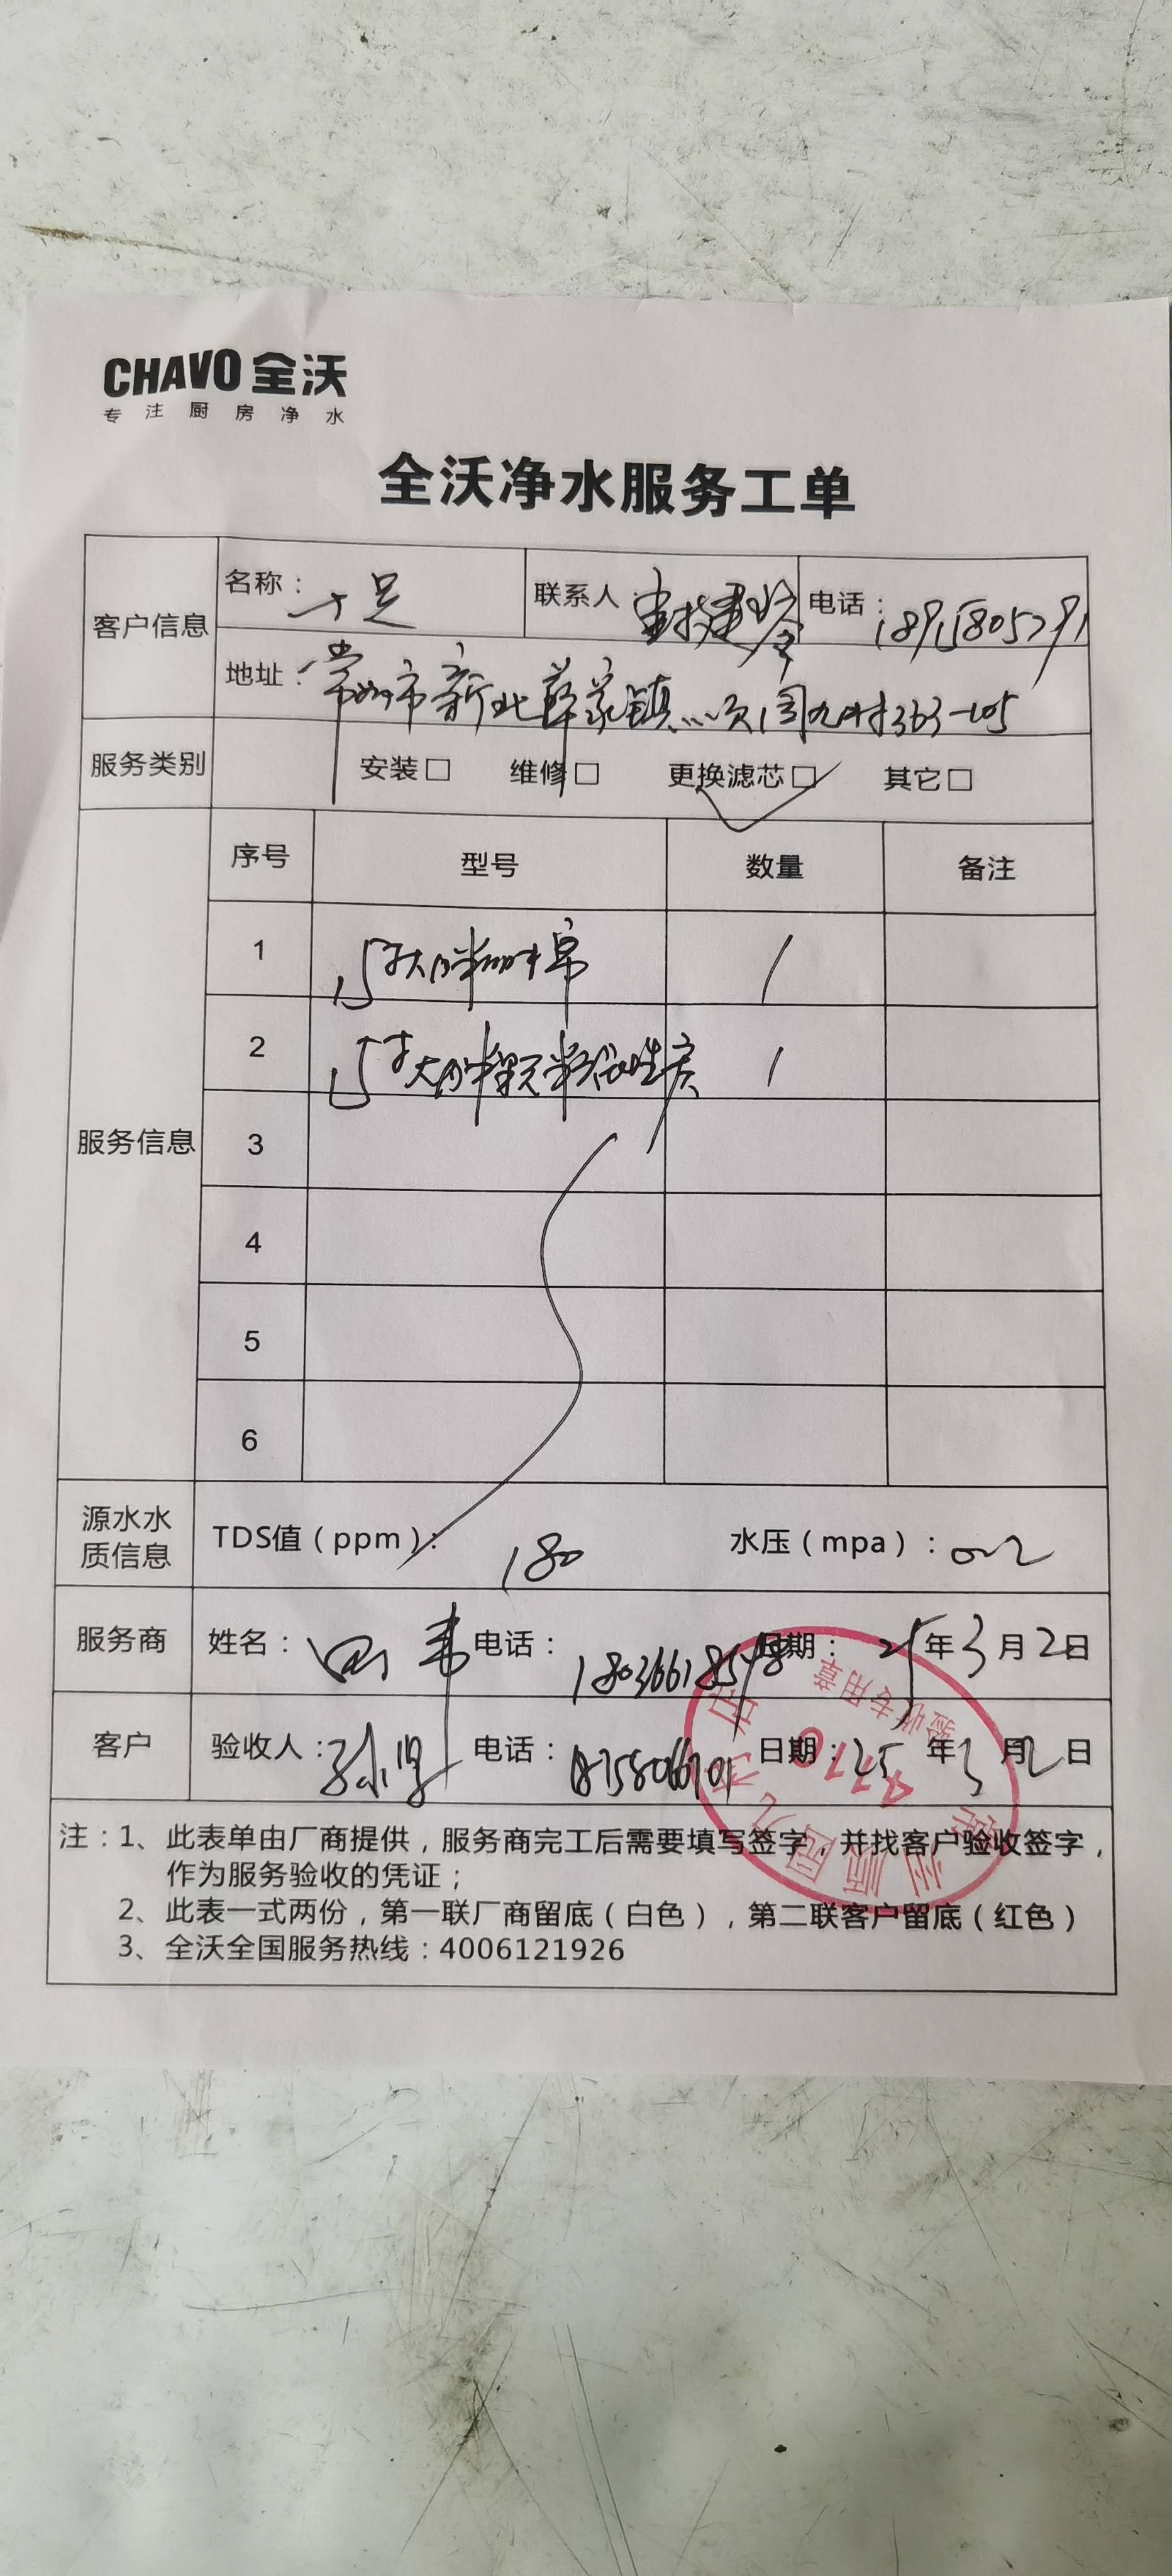 CHAVO 全沃
专注厨房净水
全沃净水服务工单
客户信息
名称： 十足
联系人
电话： 18915805791
地址： 常州市新北薛家镇 顺园九村363-105
服务类别
安装□ 维修□ 更换滤芯□ 其它□
服务信息
序号 型号 数量 备注
1 15寸大胖pp棉 1
2 15寸大胖颗粒活性炭 1
3
4
5
6
源水水质信息
TDS值（ppm）： 180 水压（mpa）： 0.2
服务商
姓名： 电话： 日期： 25年3月2日
客户
验收人： 电话： 日期： 25年3月2日
验收专用章
4776
注：1、此表单由厂商提供，服务商完工后需要填写签字，并找客户验收签字，
作为服务验收的凭证；
2、此表一式两份，第一联厂商留底（白色），第二联客户留底（红色）
3、全沃全国服务热线：4006121926